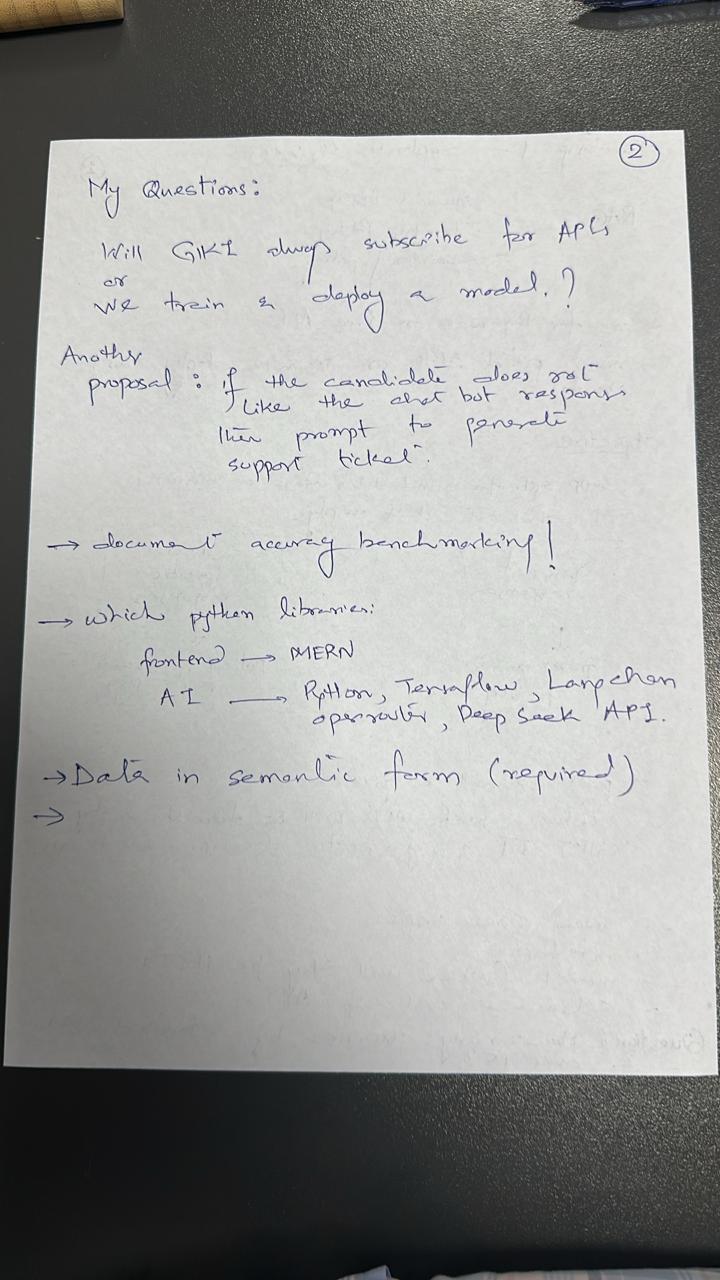 2
My Questions:
Will GIKI always subscribe for APIs
or
we train & deploy a model.?
Another
proposal : if the candidate does not
like the chat bot response
then prompt to generate
support ticket.
→ document accuracy benchmarking!
→ which python libraries:
frontend → MERN
AI → Python, Tensaflow, Langchan
openrouter, Deep Seek API.
→ Data in semantic form (required)
→